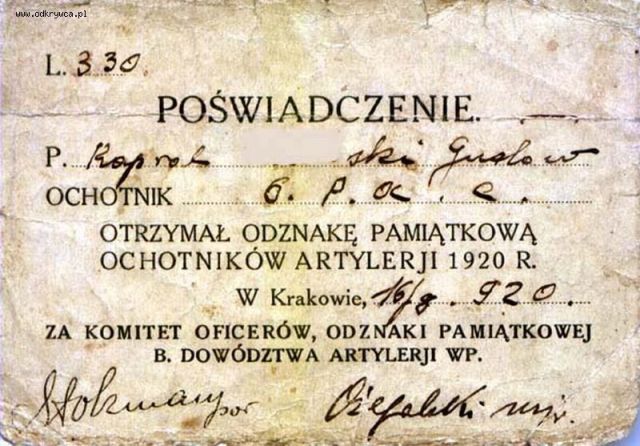 www.odkrywca.pl
L. 330.
POŚWIADCZENIE.
P. Kapral ski Gustaw
OCHOTNIK 6. p. a. c.
OTRZYMAŁ ODZNAKĘ PAMIĄTKOWĄ
OCHOTNIKÓW ARTYLERJI 1920 R.
W Krakowie, 16/9. 920.
ZA KOMITET OFICERÓW, ODZNAKI PAMIĄTKOWEJ
B. DOWÓDZTWA ARTYLERJI WP.
por mjr.